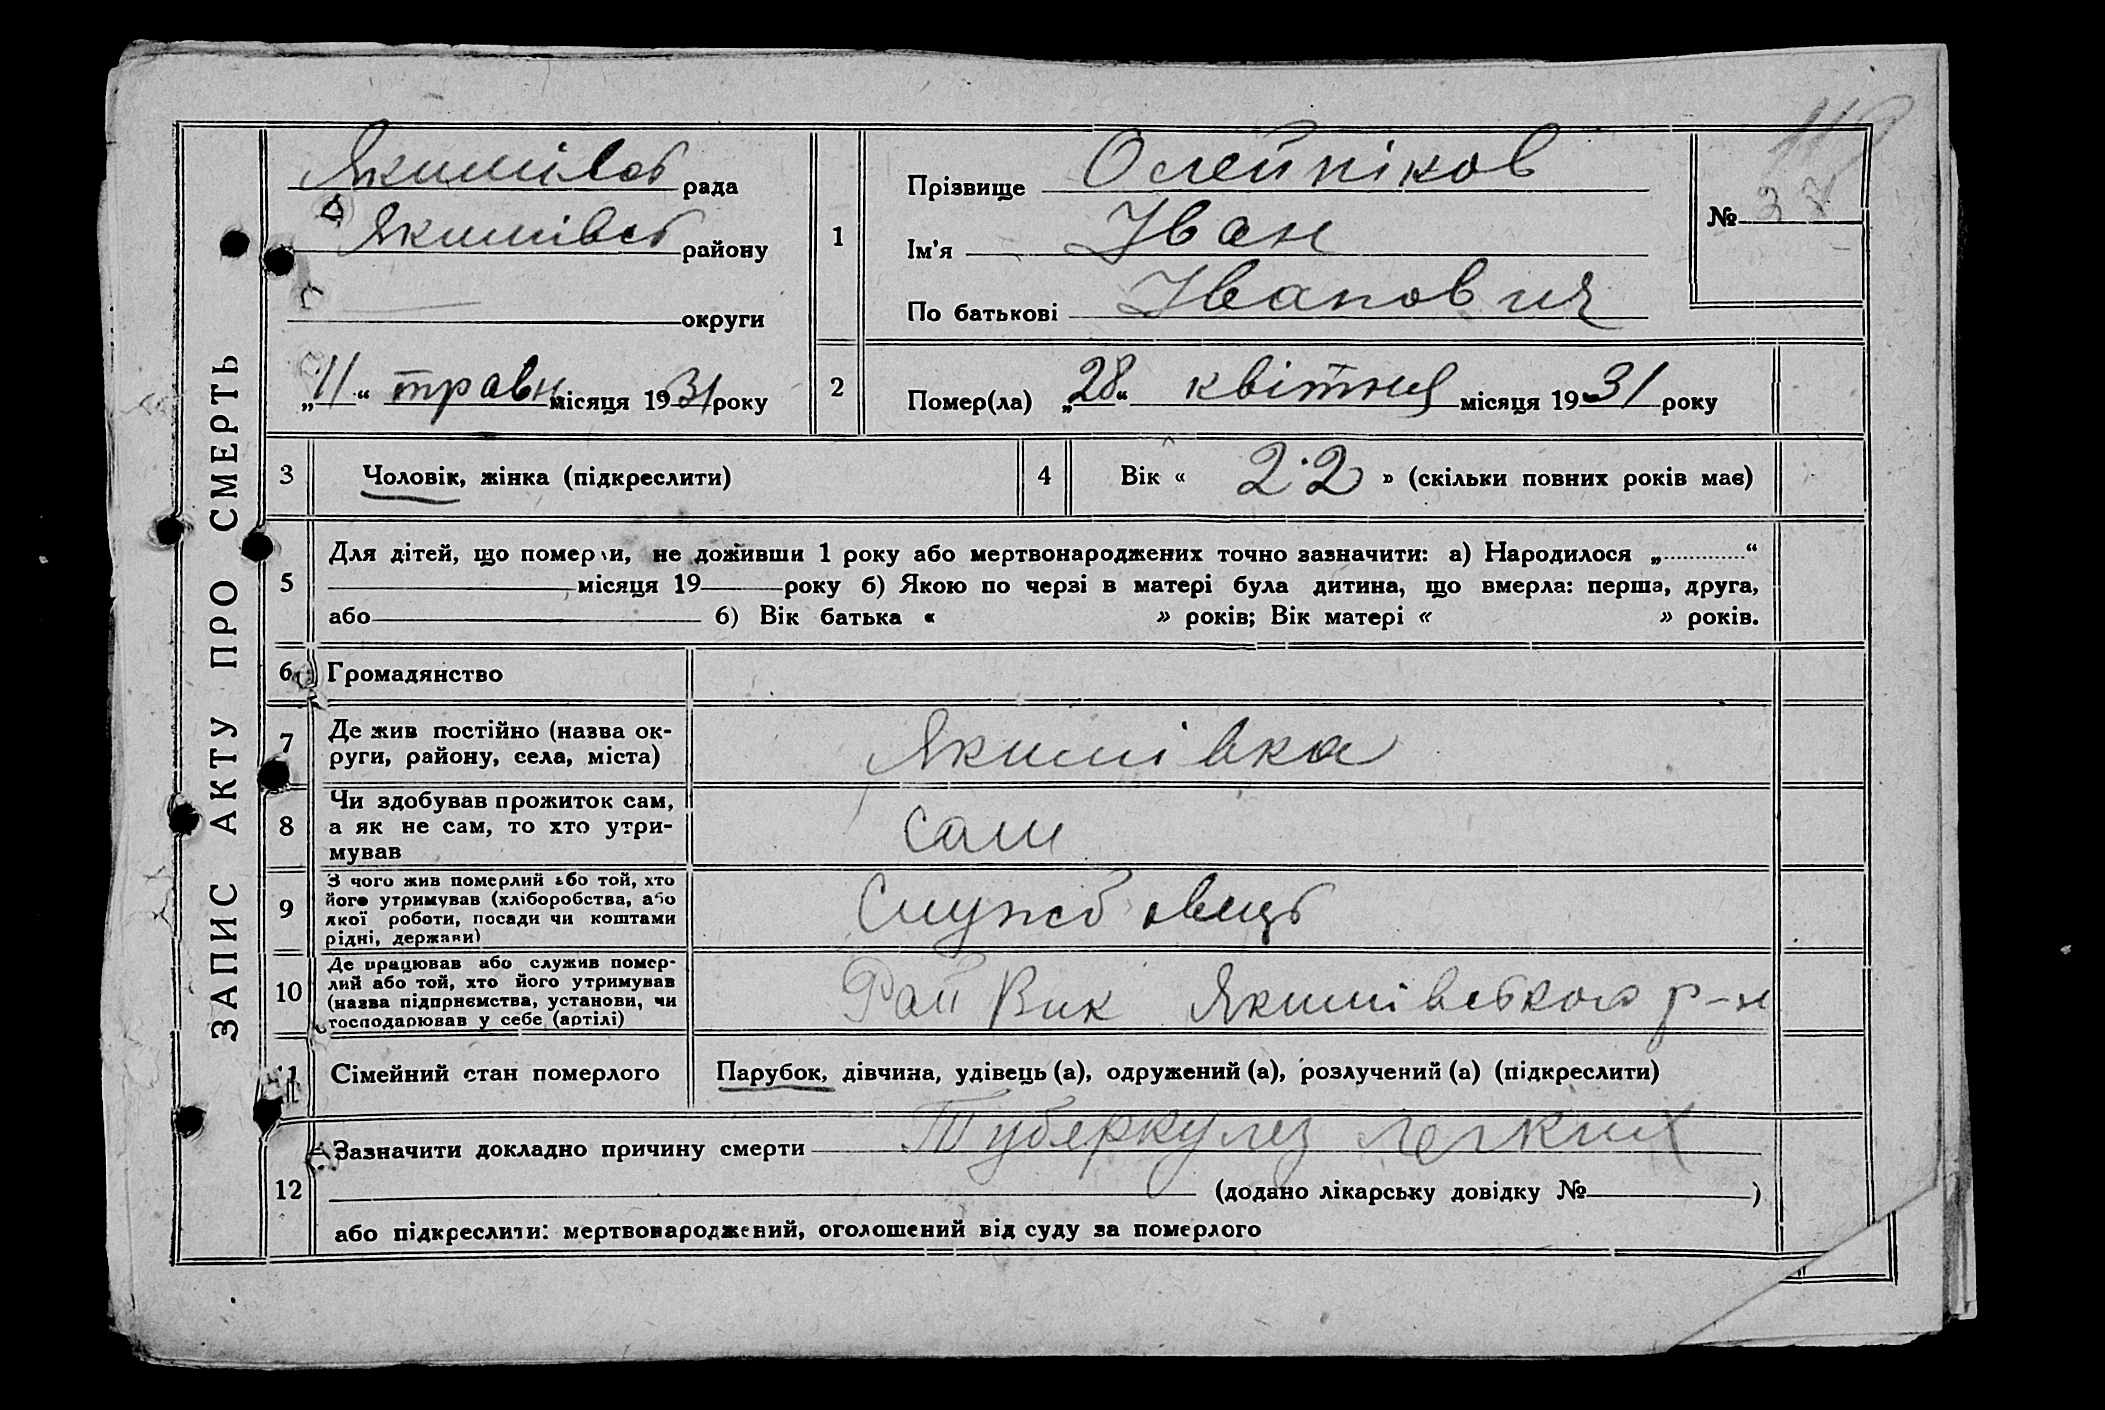 ЗАПИС АКТУ ПРО СМЕРТЬ
Якимівсь рада
Якимівсь району
округи
„11“ травн місяця 1931 року
1
Прізвище Олейніков
Ім'я Іван
По батькові Іванович
№ 37
2
Помер(ла) „28“ квітня місяця 1931 року
3 Чоловік, жінка (підкреслити)
4 Вік « 22 » (скільки повних років має)
5
Для дітей, що померли, не доживши 1 року або мертвонароджених точно зазначити: а) Народилося „ “
місяця 19 року б) Якою по черзі в матері була дитина, що вмерла: перша, друга,
або б) Вік батька « » років; Вік матері « » років.
6 Громадянство
7
Де жив постійно (назва ок-
руги, району, села, міста)
Якимівка
8
Чи здобував прожиток сам,
а як не сам, то хто утри-
мував
Сам
9
З чого жив померлий або той, хто
його утримував (хліборобства, або
якої роботи, посади чи коштами
рідні, держави)
Службовець
10
Де працював або служив помер-
лий або той, хто його утримував
(назва підприємства, установи, чи
господарював у себе (артілі)
Рай Вик Якимівського р-н
11 Сімейний стан померлого
Парубок, дівчина, удівець (а), одружений (а), розлучений (а) (підкреслити)
12
Зазначити докладно причину смерти Туберкулез легких
(додано лікарську довідку № )
або підкреслити: мертвонароджений, оголошений від суду за померлого